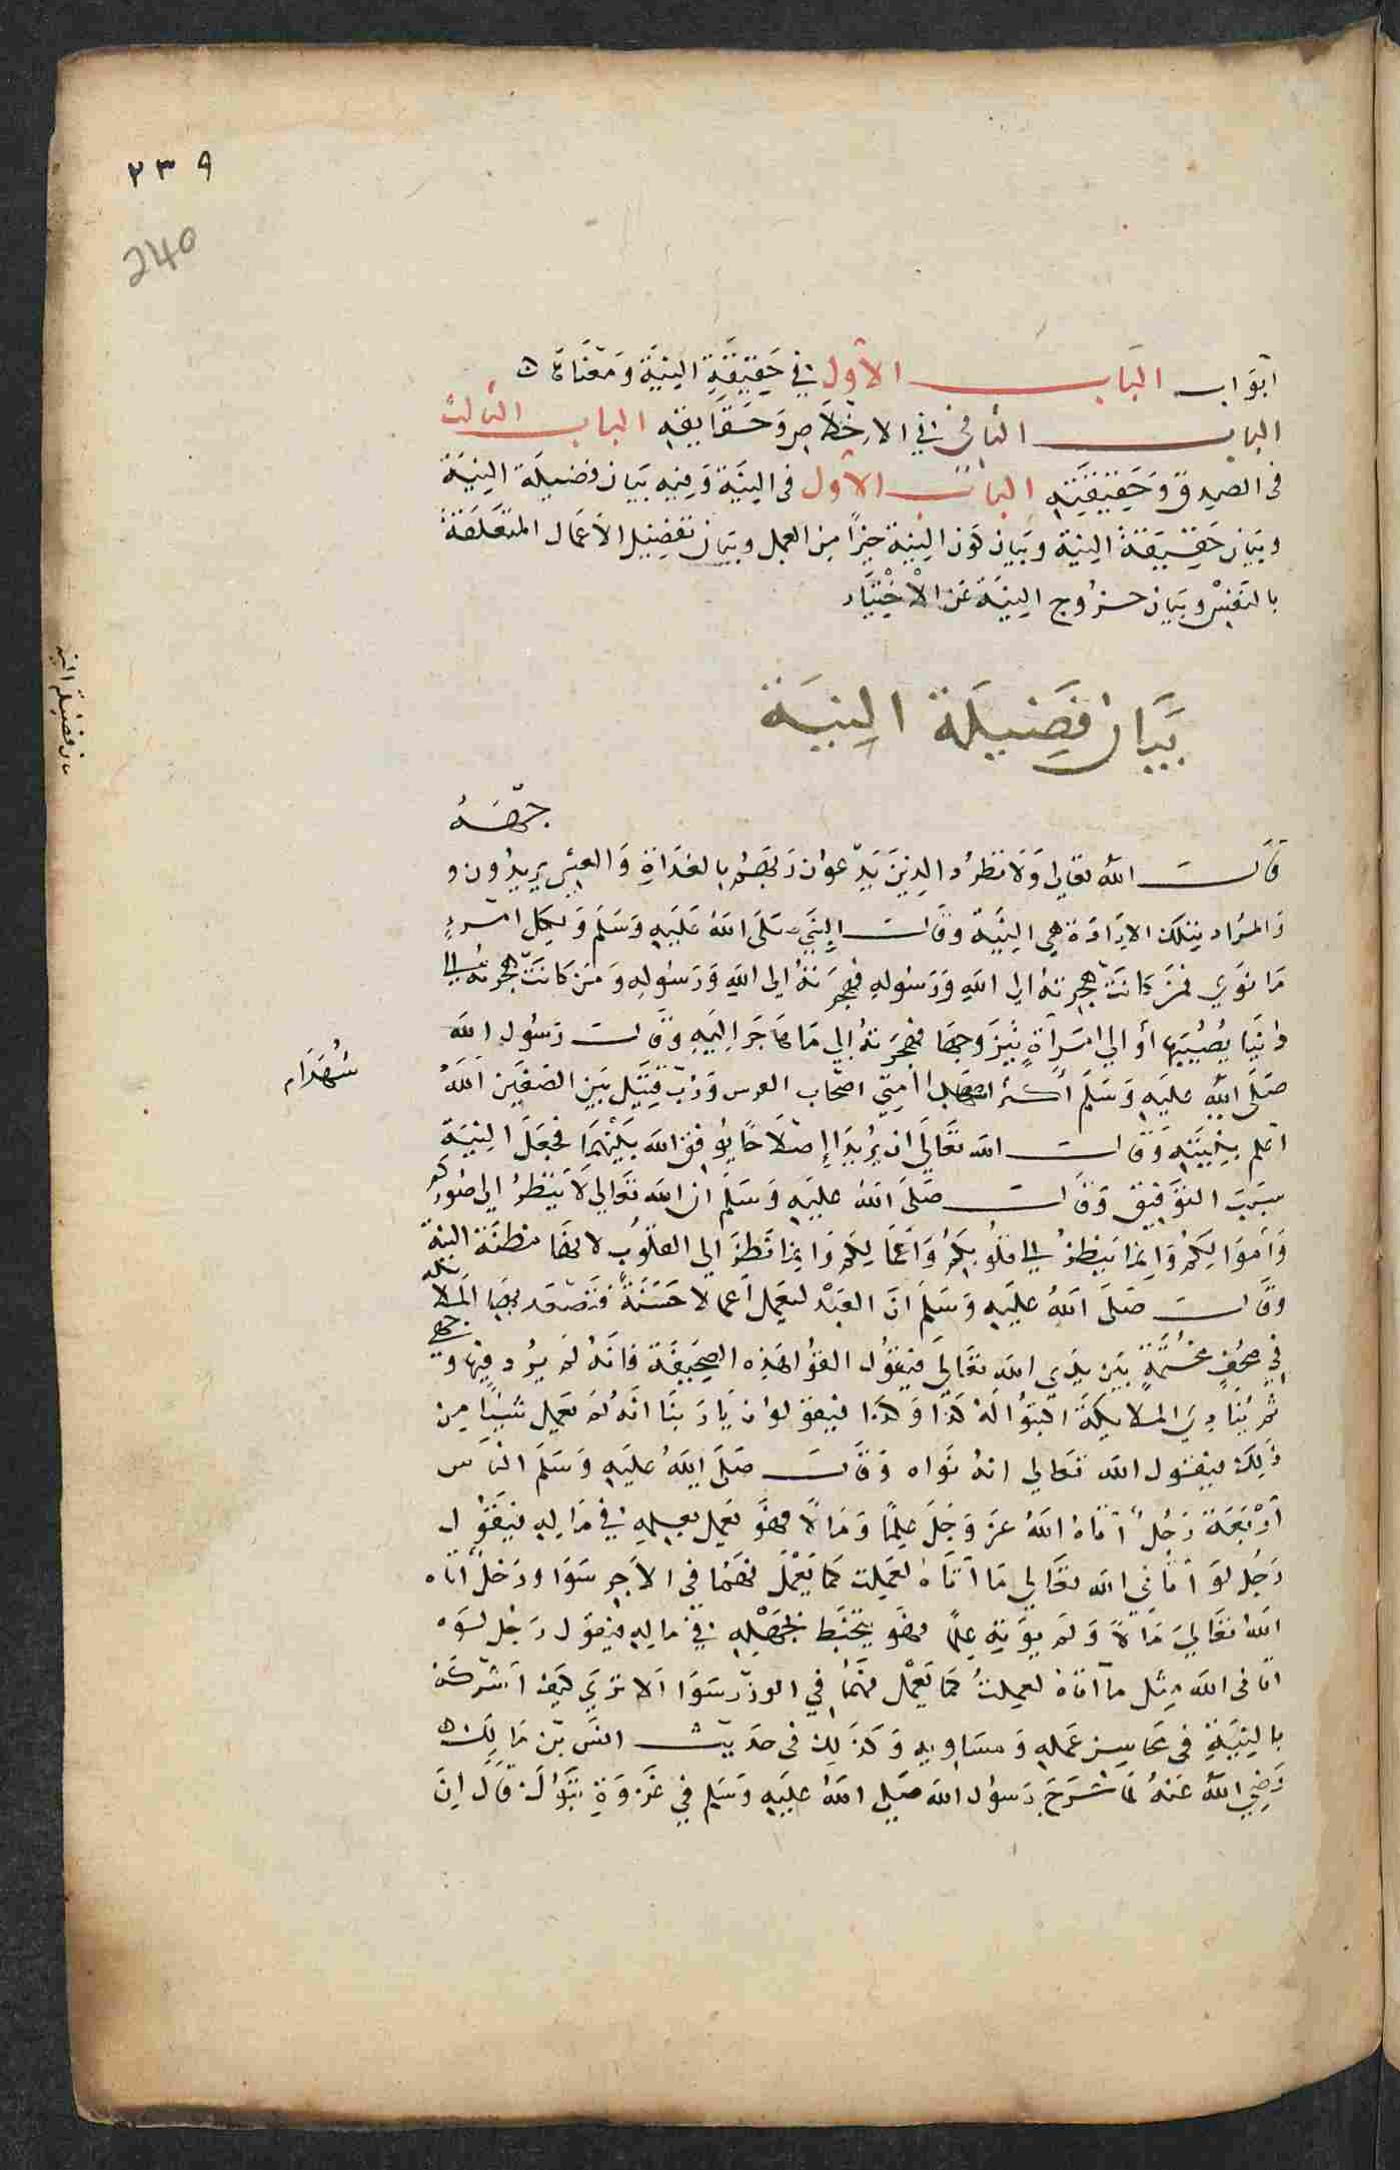 ٢٣٩
240
ابواب الباب الأول في حقيقة النية ومعناه
الباب الثاني في الاخلاص وحقايقه الباب الثالث
في الصدق وحقيقته الباب الأول في النية وفيه بيان فضيلة النية
وبيان حقيقة النية وبيان كون النية خيرًا من العمل وبيان تفضيل الاعمال المتعلقة
بالنفس وبيان خروج النية عن الاختيار
بيان فضيلة النية
بيان فضيلة النية
وجهه
قال الله تعالى ولا تطرد الذين يدعون ربهم بالغداة والعشي يريدون
والمراد بتلك الارادة هي النية وقال النبي صلى الله عليه وسلم ولكل امرء
ما نوى فمن كانت هجرته الى الله ورسوله فهجرته الى الله ورسوله ومن كانت هجرته الى
دنيا يصيبها أو الى امرأة يتزوجها فهجرته الى ما هاجر اليه وقال رسول الله
صلى الله عليه وسلم أكثر امتي اصحاب الفرس ورب قتيل بين الصفين الله
شهداء
اعلم بنيته وقال الله تعالى ان يريدا إصلاحا يوفق الله بينهما فجعل النية
سبب التوفيق وقال صلى الله عليه وسلم ان الله تعالى لا ينظر الى صوركم
وأموالكم وانما ينظر الى قلوبكم وأعمالكم وانما نظر الى القلوب لانها مظنة النية
وقال صلى الله عليه وسلم ان العبد ليعمل أعمالا حسنة فتصعد بها الملائكة
في صحف مختمة بين يدي الله تعالى فيقول القوا هذه الصحيفة فانه لم يرد فيها وجهي
ثم ينادي الملايكة اكتبوا له كذا وكذا فيقولون يا ربنا انه لم يعمل شيئا من
ذلك فيقول الله تعالى انه نواه وقال صلى الله عليه وسلم الناس
أربعة رجل أتاه الله عز وجل علمًا ومالًا فهو يعمل بعلمه في ماله فيقول
رجل لو أتاني الله تعالى ما أتاه لعملت كما يعمل فهما في الاجر سوا ورجل أتاه
الله تعالى مالا ولم يؤته علما فهو يتخبط بجهله في ماله فيقول رجل لو
اتاني الله مثل ما آتاه لعملت كما يعمل فهما في الوزر سوا ألا ترى كيف اشركه
بالنية في محاسن عمله ومساويه وكذلك في حديث انس بن مالك
رضي الله عنه لما خرج رسول الله صلى الله عليه وسلم في غزوة تبوك قال ان